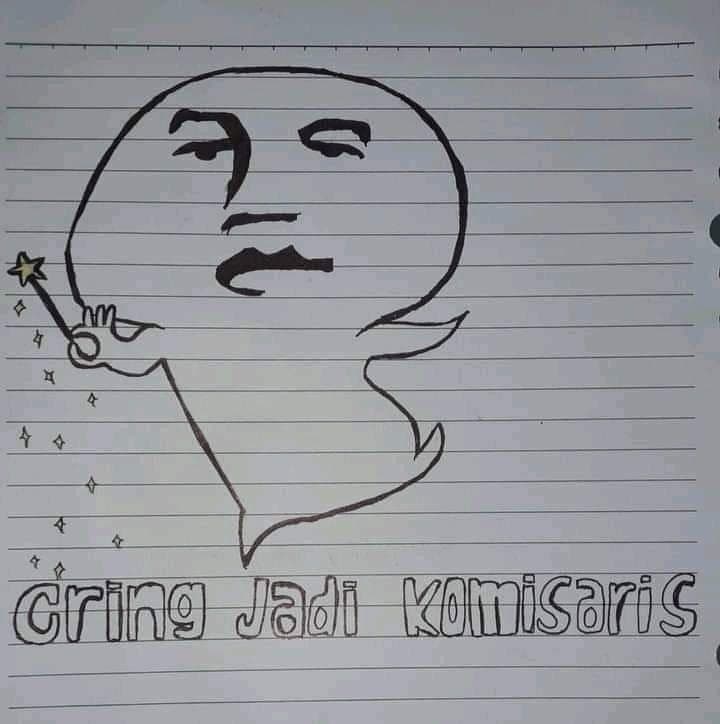 cring Jadi Komisaris